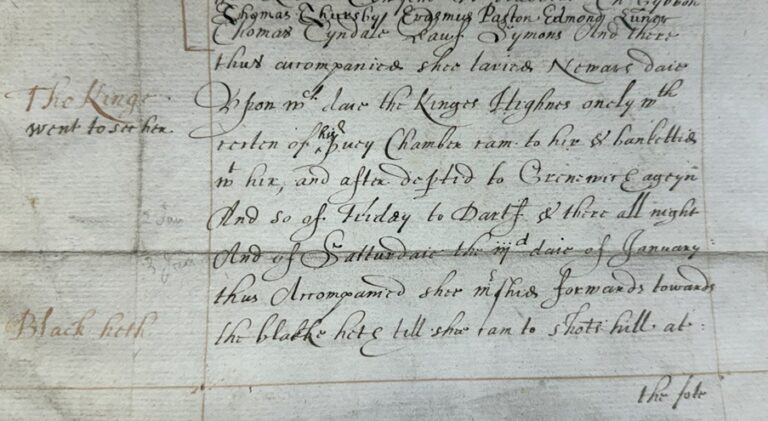 Thomas Thursby Erasmus Paston Edmond
Thomas Tyndale Symons And there
thus accompanied shee taried Newars daie
The Kinge
Vpon wch daie the Kinges Highnes onely wth
went to see her
certen of his Prvey Chamber cam to hir & banketted
wt hir, and after depted to Grenewich ageyn
2 Jan
And so of Friday to Dartf & there all night
3 Jan
And of Satturdaie the iijd daie of January
thus Accompanied shee mrshid forwards towards
Black heth
the blakke heth till shee cam to shots hill at
the fote